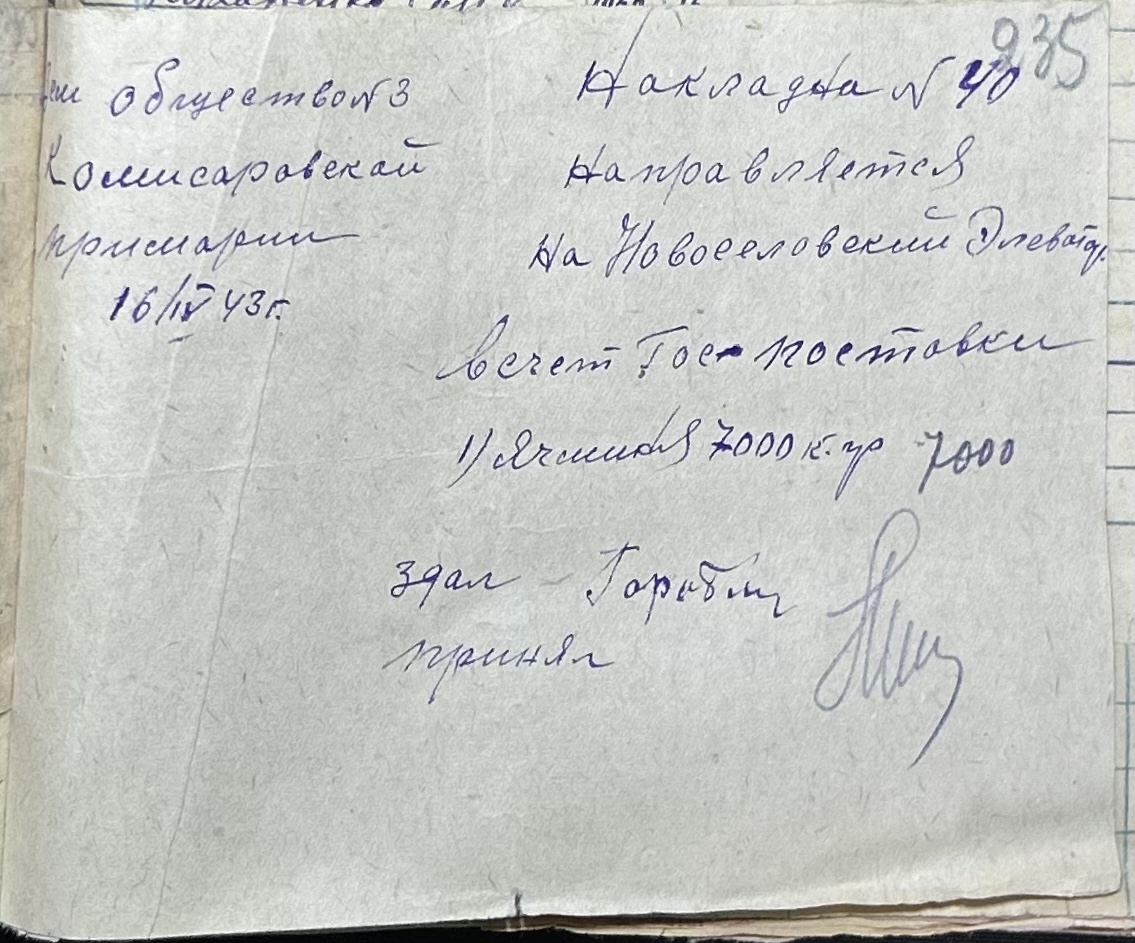 235
общество N 3
Комисаровской
примарии
16/IV 43 г.
Накладна N 40
Направляется
на Новоселовский Элеватор
в счет Гос-поставки
1) Ячминя 7000 к.гр 7000
Здал
принял